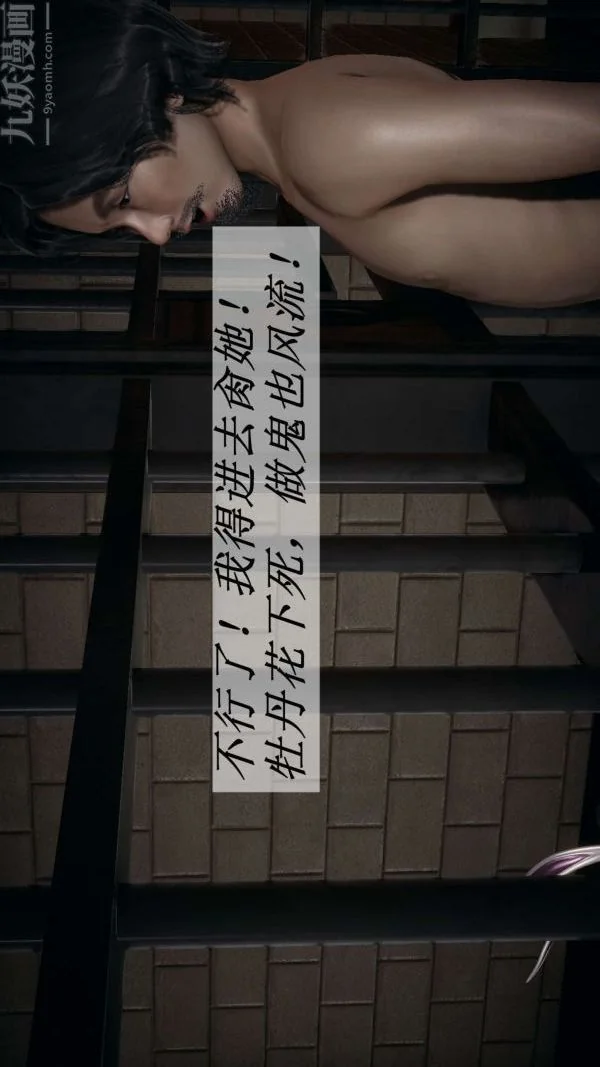 九妖漫画
9yaomh.com
不行了！我得进去肏她！
牡丹花下死，做鬼也风流！